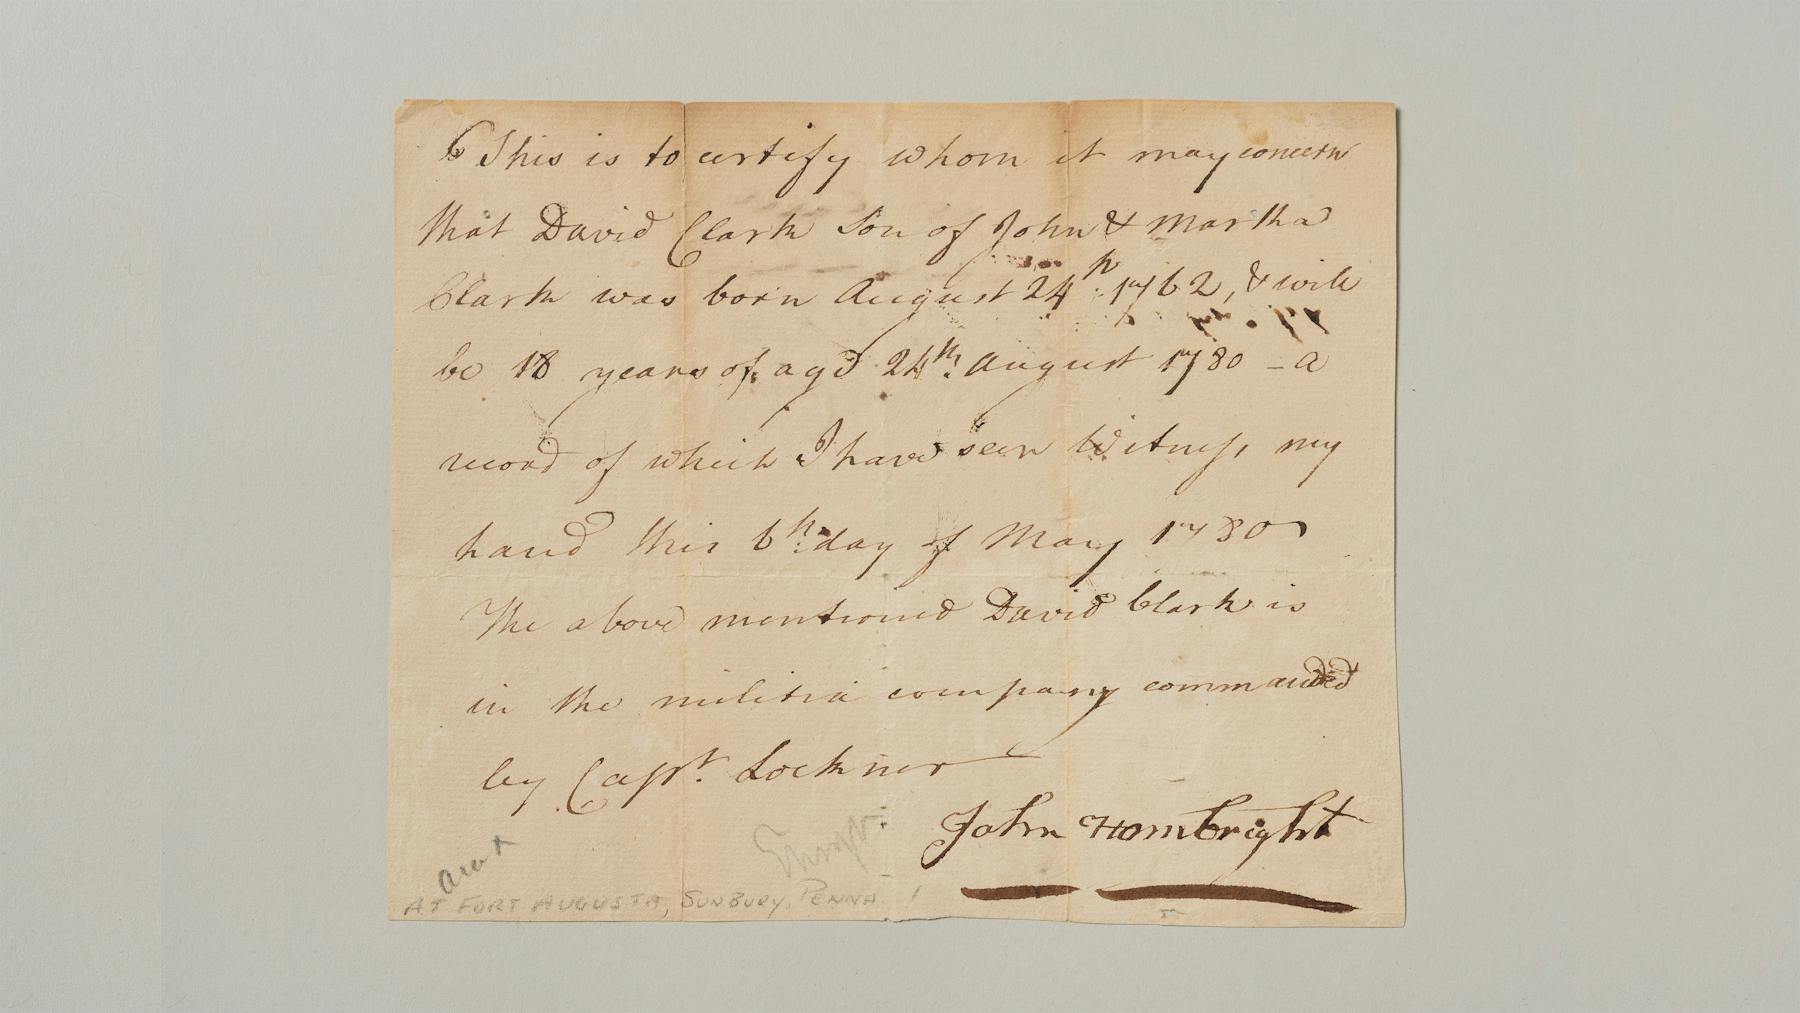 This is to certify whom it may concern
that David Clark Son of John & Martha
Clark was born August 24th 1762, & will
be 18 years of age 24th August 1780 – a
record of which I have seen Witness my
hand this 6th day of May 1780
The above mentioned David Clark is
in the militia company commanded
by Capt. Lockner
John Hambright
AT FORT AUGUSTA, SUNBURY, PENNA.